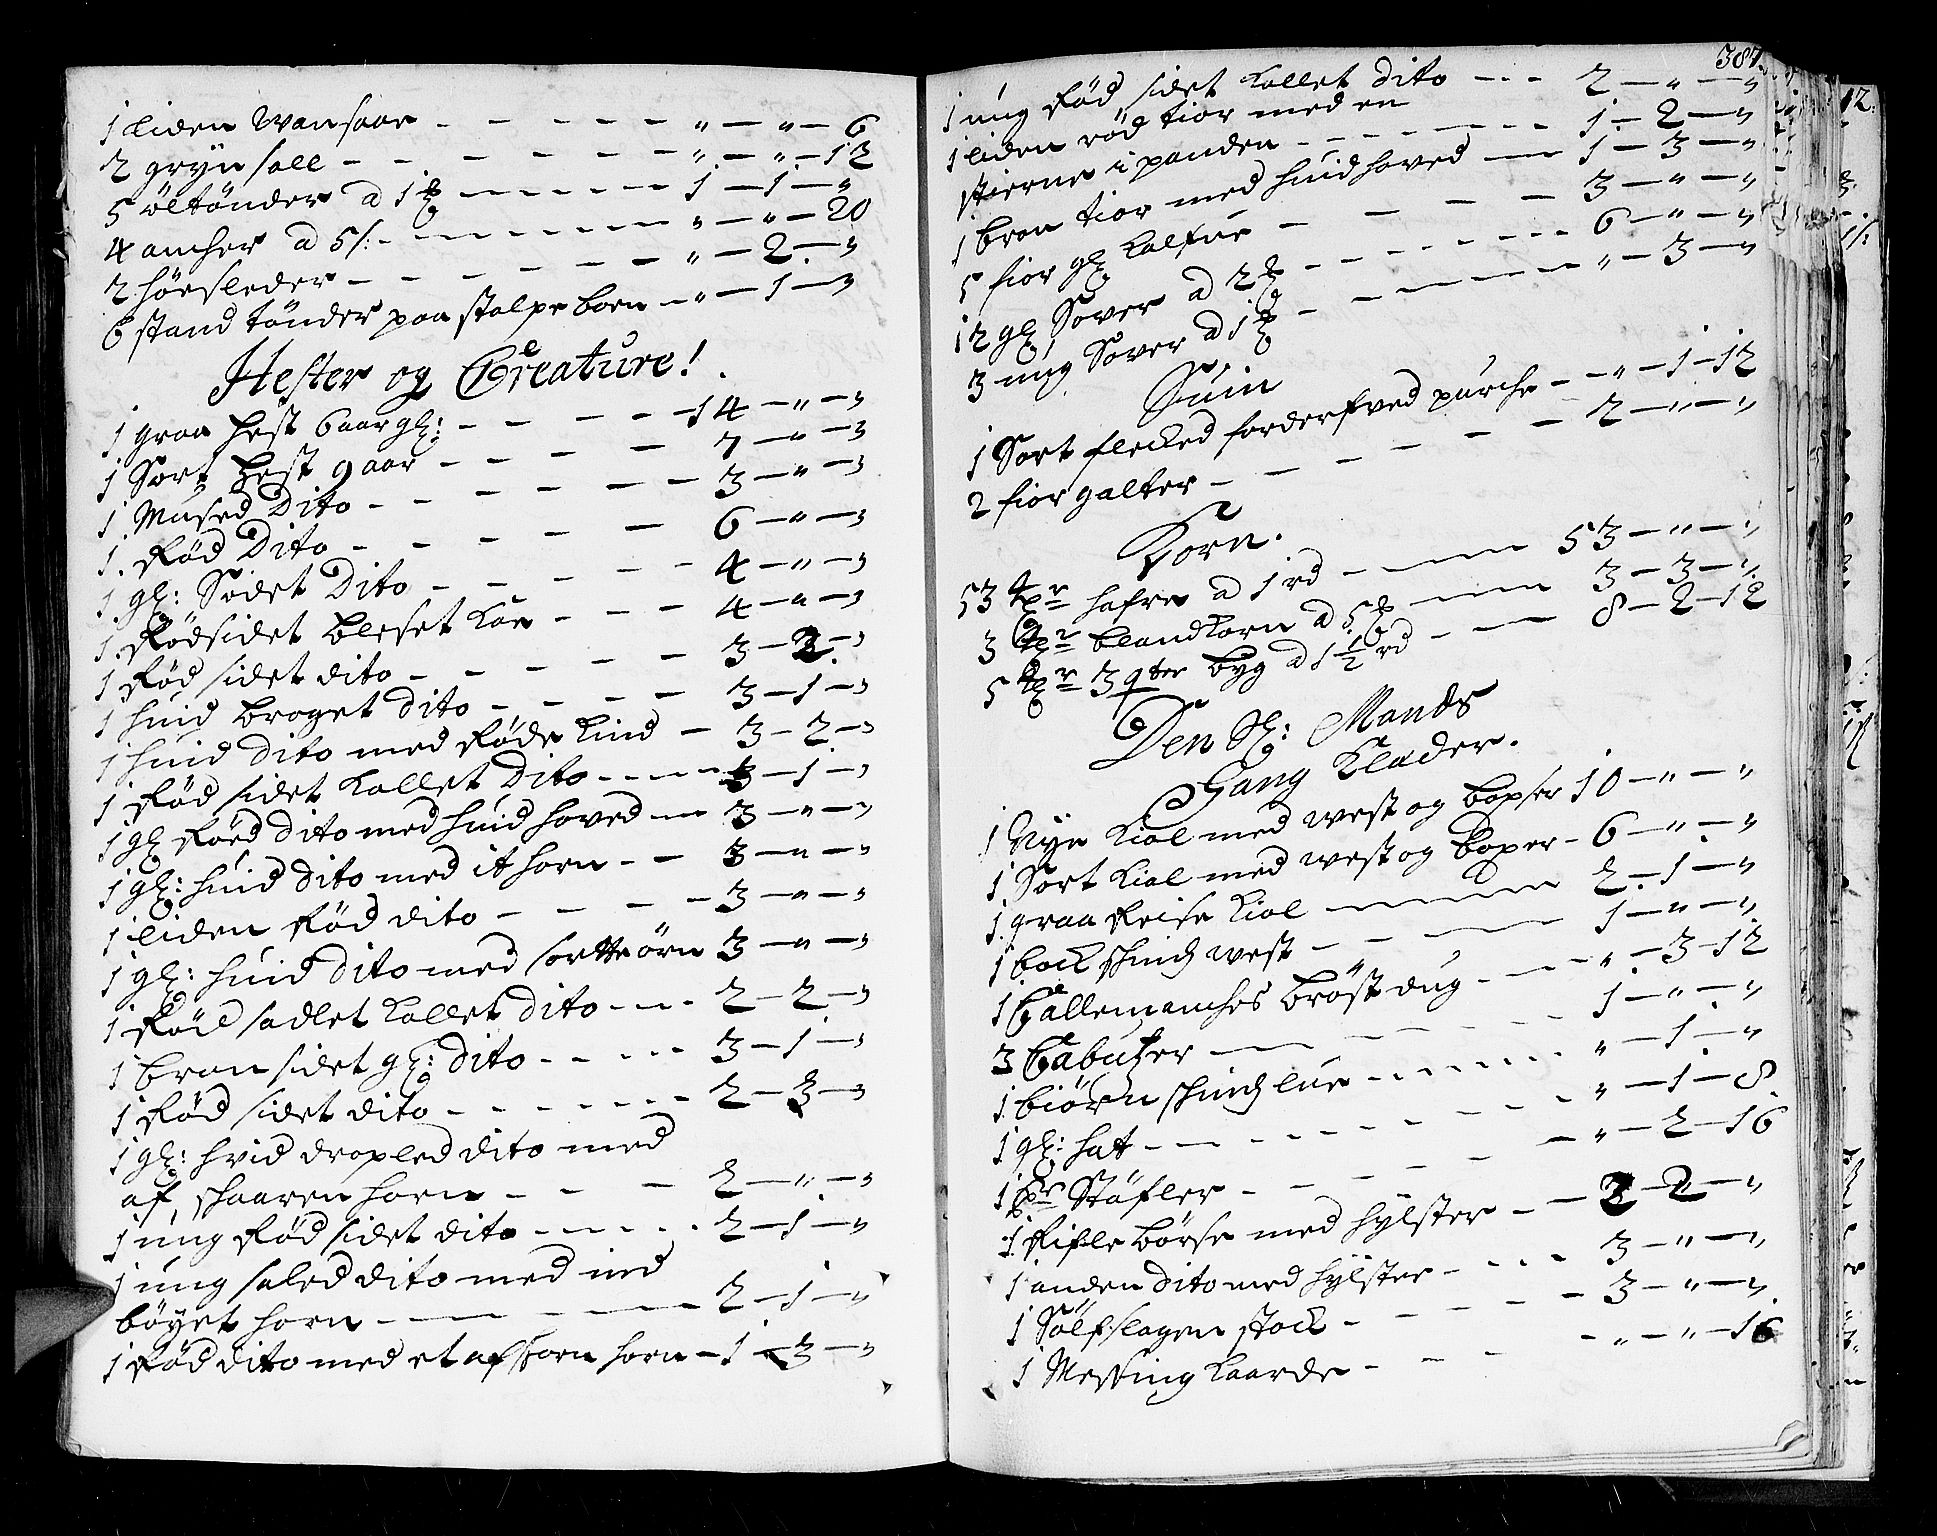 1 liden Wansaae - - - - - - " - " - 6
2 gryn soll - - - - - - " - " - 12
5 öltönder a 1 ß - - - - 1 - 1 - "
4 ancher a 5 s: - - - - - " - " - 20
2 höesleder - - - - - - " - 2 - "
6 stand tönder paa stolpe boen - " - 1 - "
Hester og Creature!
1 graa hest 6 aar gl: - - - - 14 - " - "
1 Sort hest 9 aar - - - - 7 - " - "
1 Mused Dito - - - - - - 3 - " - "
1. Rød Dito - - - - - 6 - " - "
1 gl: Sodet Dito - - - - - 4 - " - "
1. Rødsidet bleset Koe - - - 4 - " - "
1 Rød sidet dito - - - - - 3 - 2 - "
1 huid broget dito - - - - 3 - 1 - "
1 huid dito med Røde kind - 3 - 2 - "
1 Rød sidet kollet dito - - - - 3 - 1 - "
1 gl Røed dito med huid hoved - 3 - " - "
1 gl: huid dito med it horn - - 3 - " - "
1 liden Rød dito - - - - 3 - " - "
1 gl: huid dito med sortte örn 3 - " - "
1 Röd sadlet kollet dito - - - 2 - 2 - "
1 bron sidet gl: dito - - - - 3 - 1 - "
1 Rød sidet dito - - - - - - 2 - 3 - "
1 gl: hvid dropled dito med
af shaaren horn - - - 2 - " - "
1 ung Rød sidet dito - - - - - 2 - 1 - "
1 ung saled dito med ned
böyet horn - - - - 2 - 1 - "
1 Rød dito med et afstoen horn - 1 - 3 - "
387
1 ung Rød sidet kollet dito - - - 2 - " - "
1 liden röd tior med en
stierne i panden - - - - - - 1 - 2 - "
1 bron tior med huid hoved - 1 - 3 - "
5 fior gl kalfue - - - - 3 - " - "
12 gl Sover a 2 ß - - - - - - 6 - " - "
3 ung Sover a 1 ß - - - - " - 3 - "
Suin
1 Sort flecked forderfved purche - - " - 1 - 12
2 fior galter - - - - - - 2 - " - "
Korn.
53 tr hafre a 1 rd - - - 53 - " - "
3 tr blandkorn a 5 ß - - 3 - 3 - "
5 tr 3 qter byg a 1 1/2 rd - - - 8 - 2 - 12
Den Sl: Mands
Gang Klæder.
1 Nye kiol med west og boxser 10 - " - "
1. Sort kiol med west og boxer - 6 - " - "
1. graa Reise kiol - - - 2 - 1 - "
1 bock skind west - - - - 1 - " - "
1 Callemanches bröst dug - - - " - 3 - 12
3 Cabutzer - - - - - 1 - " - "
1 biörn skind lue - - - - - - " - 1 - "
1 gl: hat - - - - - - - " - 1 - 8
1 Pr Stöfler - - - - - " - 2 - 16
1. Rifle börse med hylster - - 2 - 2 - "
1 anden dito med hylster - - - - 3 - " - "
1 Sölfslagen stock - - - - - 3 - " - "
1 Messing kaarde - - - - " - " - 16